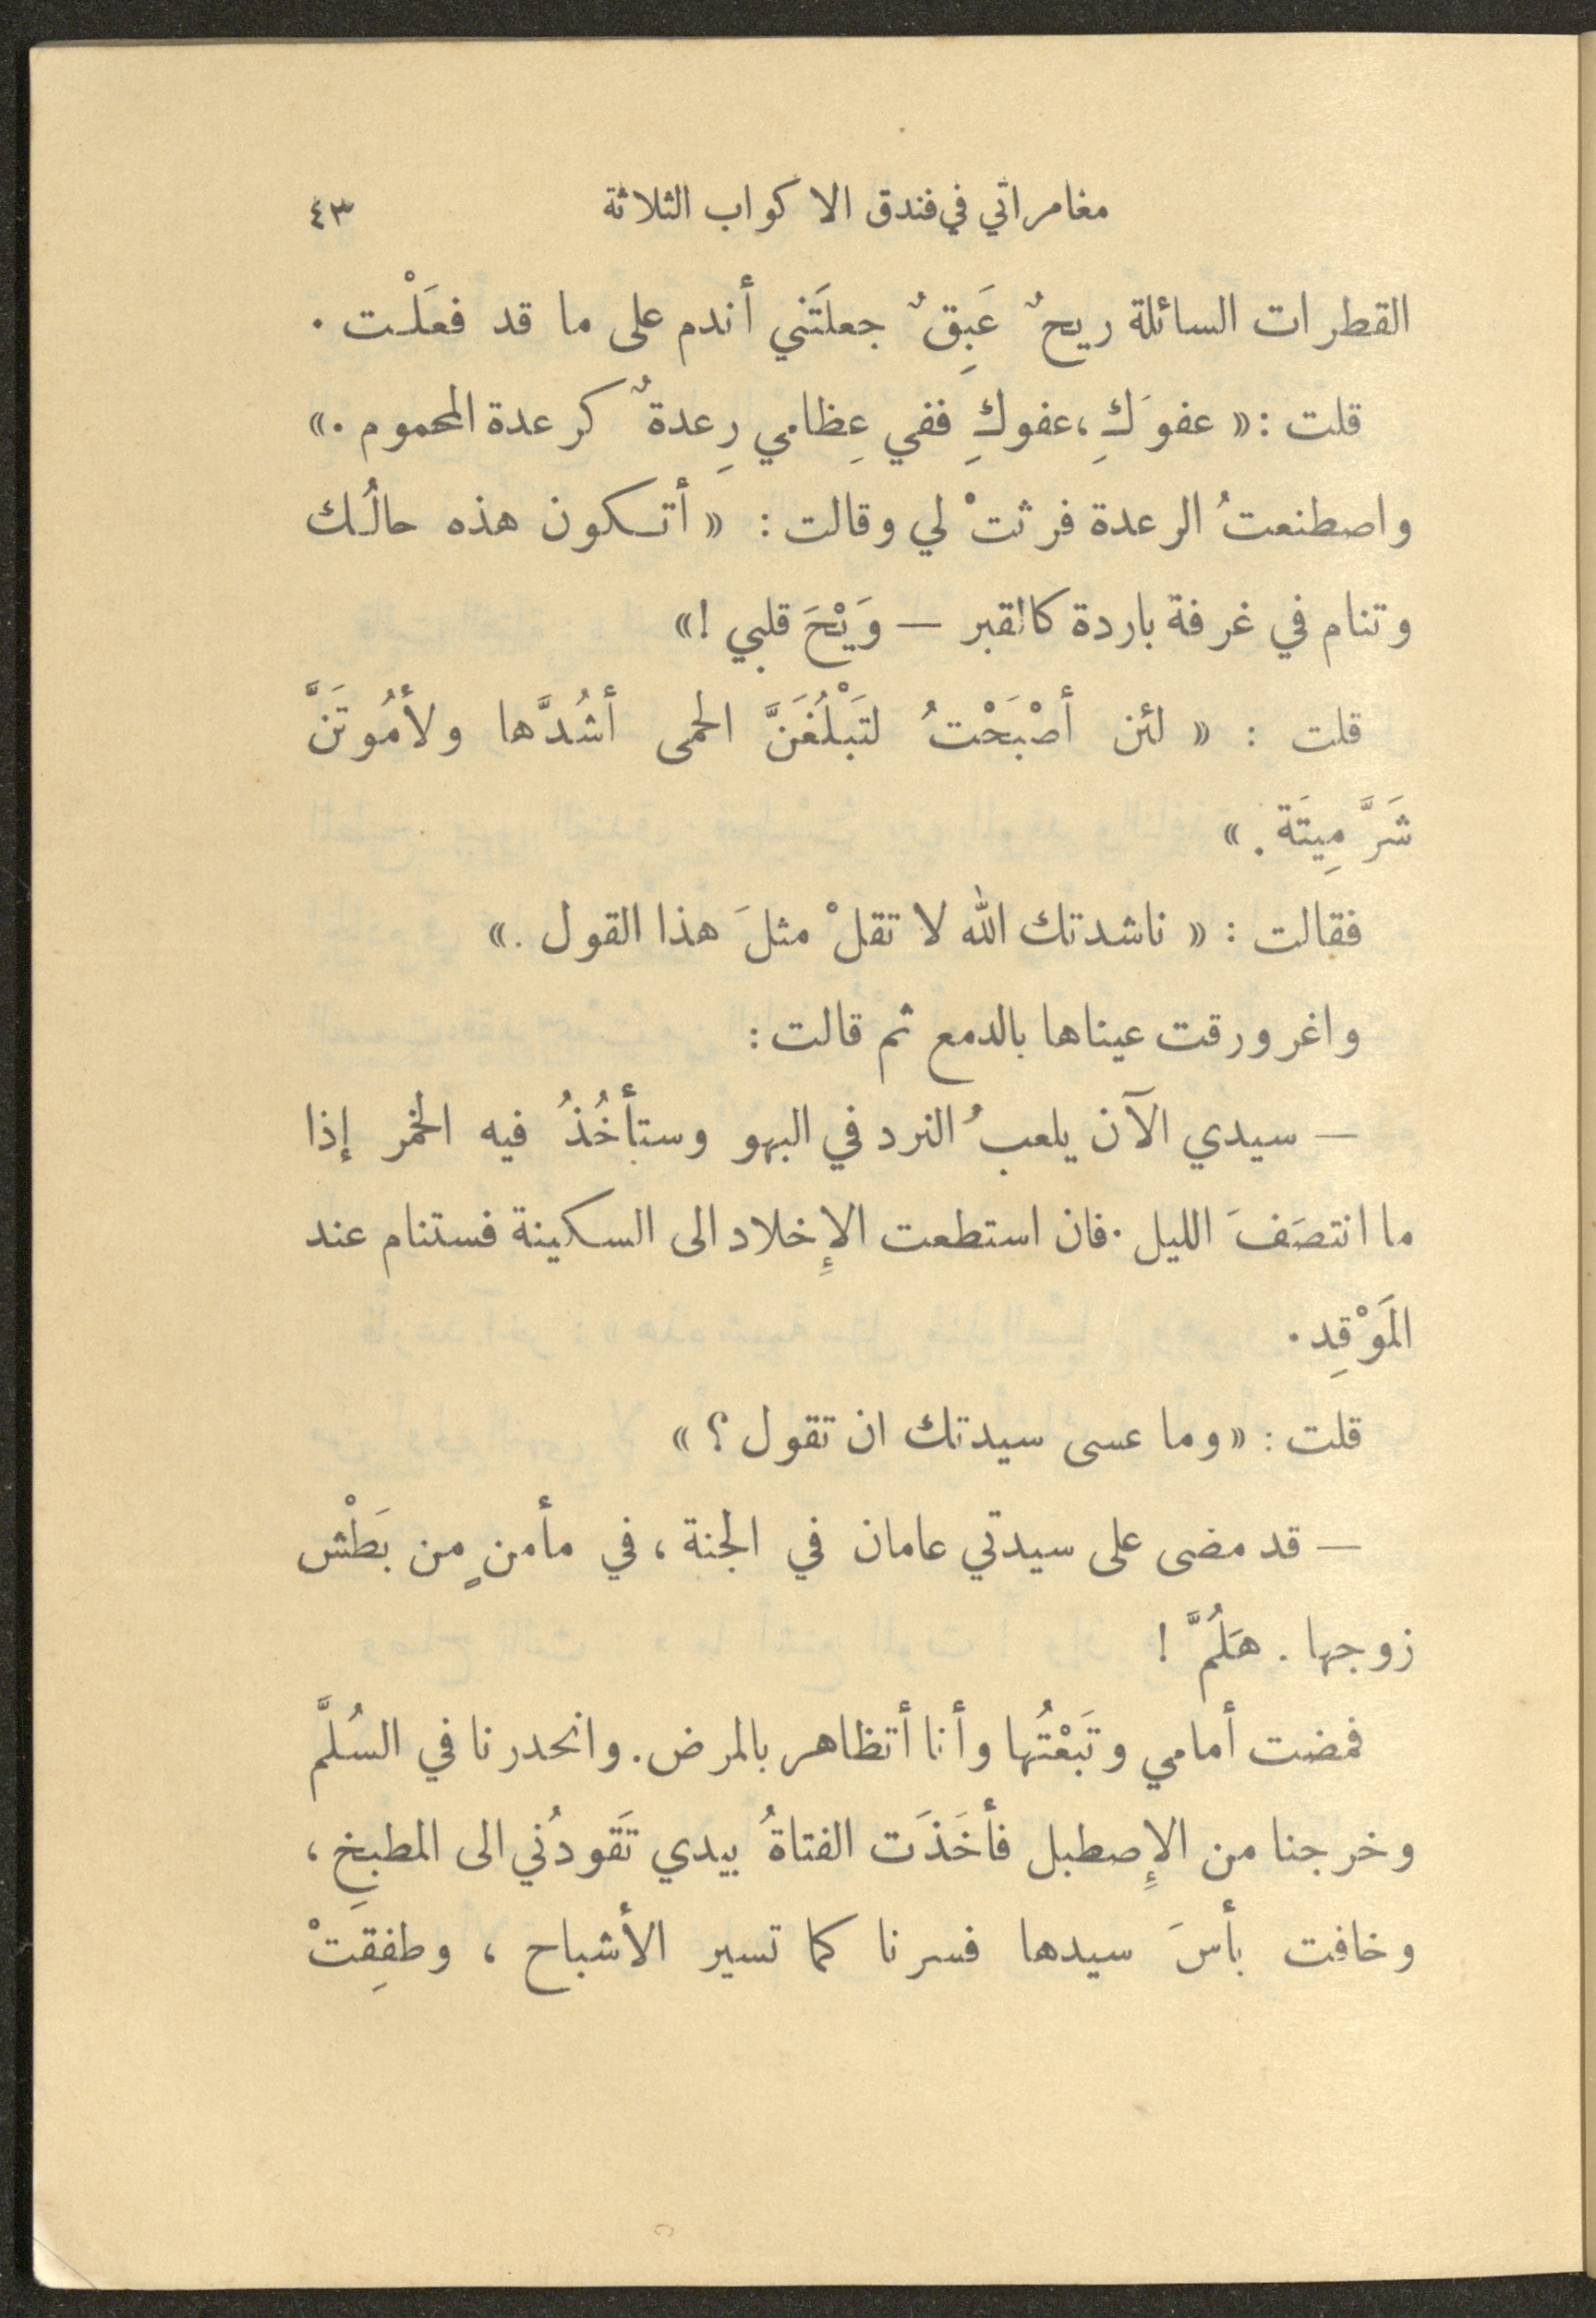 مغامراتي في فندق الاكواب الثلاثة ٤٣
القطرات السائلة ريحٌ عَبِقٌ جعلَتَني أندم على ما قد فعَلْت .
قلت : « عفوَكِ ، عفوكِ ففي عِظامي رِعدةٌ كرعدة المحموم . »
واصطنعتُ الرعدة فرثتْ لي وقالت : « أتكون هذه حالُك
وتنام في غرفة باردة كالقبر — وَيْحَ قلبي ! »
قلت : « لئن أصْبَحْتُ لتَبْلُغَنَّ الحمى أشُدَّها ولأمُوتَنَّ
شَرَّ مِيتَة . »
فقالت : « ناشدتك الله لا تقلْ مثلَ هذا القول . »
واغرورقت عيناها بالدمع ثم قالت :
— سيدي الآن يلعبُ النرد في البهو وستأخُذُ فيه الخمر إذا
ما انتصَفَ الليل . فان استطعت الإِخلاد الى السكينة فستنام عند
المَوْقِد .
قلت : « وما عسى سيدتك ان تقول ؟ »
— قد مضى على سيدتي عامان في الجنة ، في مأمنٍ من بَطْش
زوجها . هَلُمَّ !
فمضت أمامي وتَبَعْتُها وأنا أتظاهر بالمرض . وانحدرنا في السُلَّم
وخرجنا من الإِصطبل فأخَذَت الفتاةُ بيدي تَقودُني الى المطبخِ ،
وخافت بأسَ سيدها فسرنا كما تسير الأشباح ، وطفِقتْ